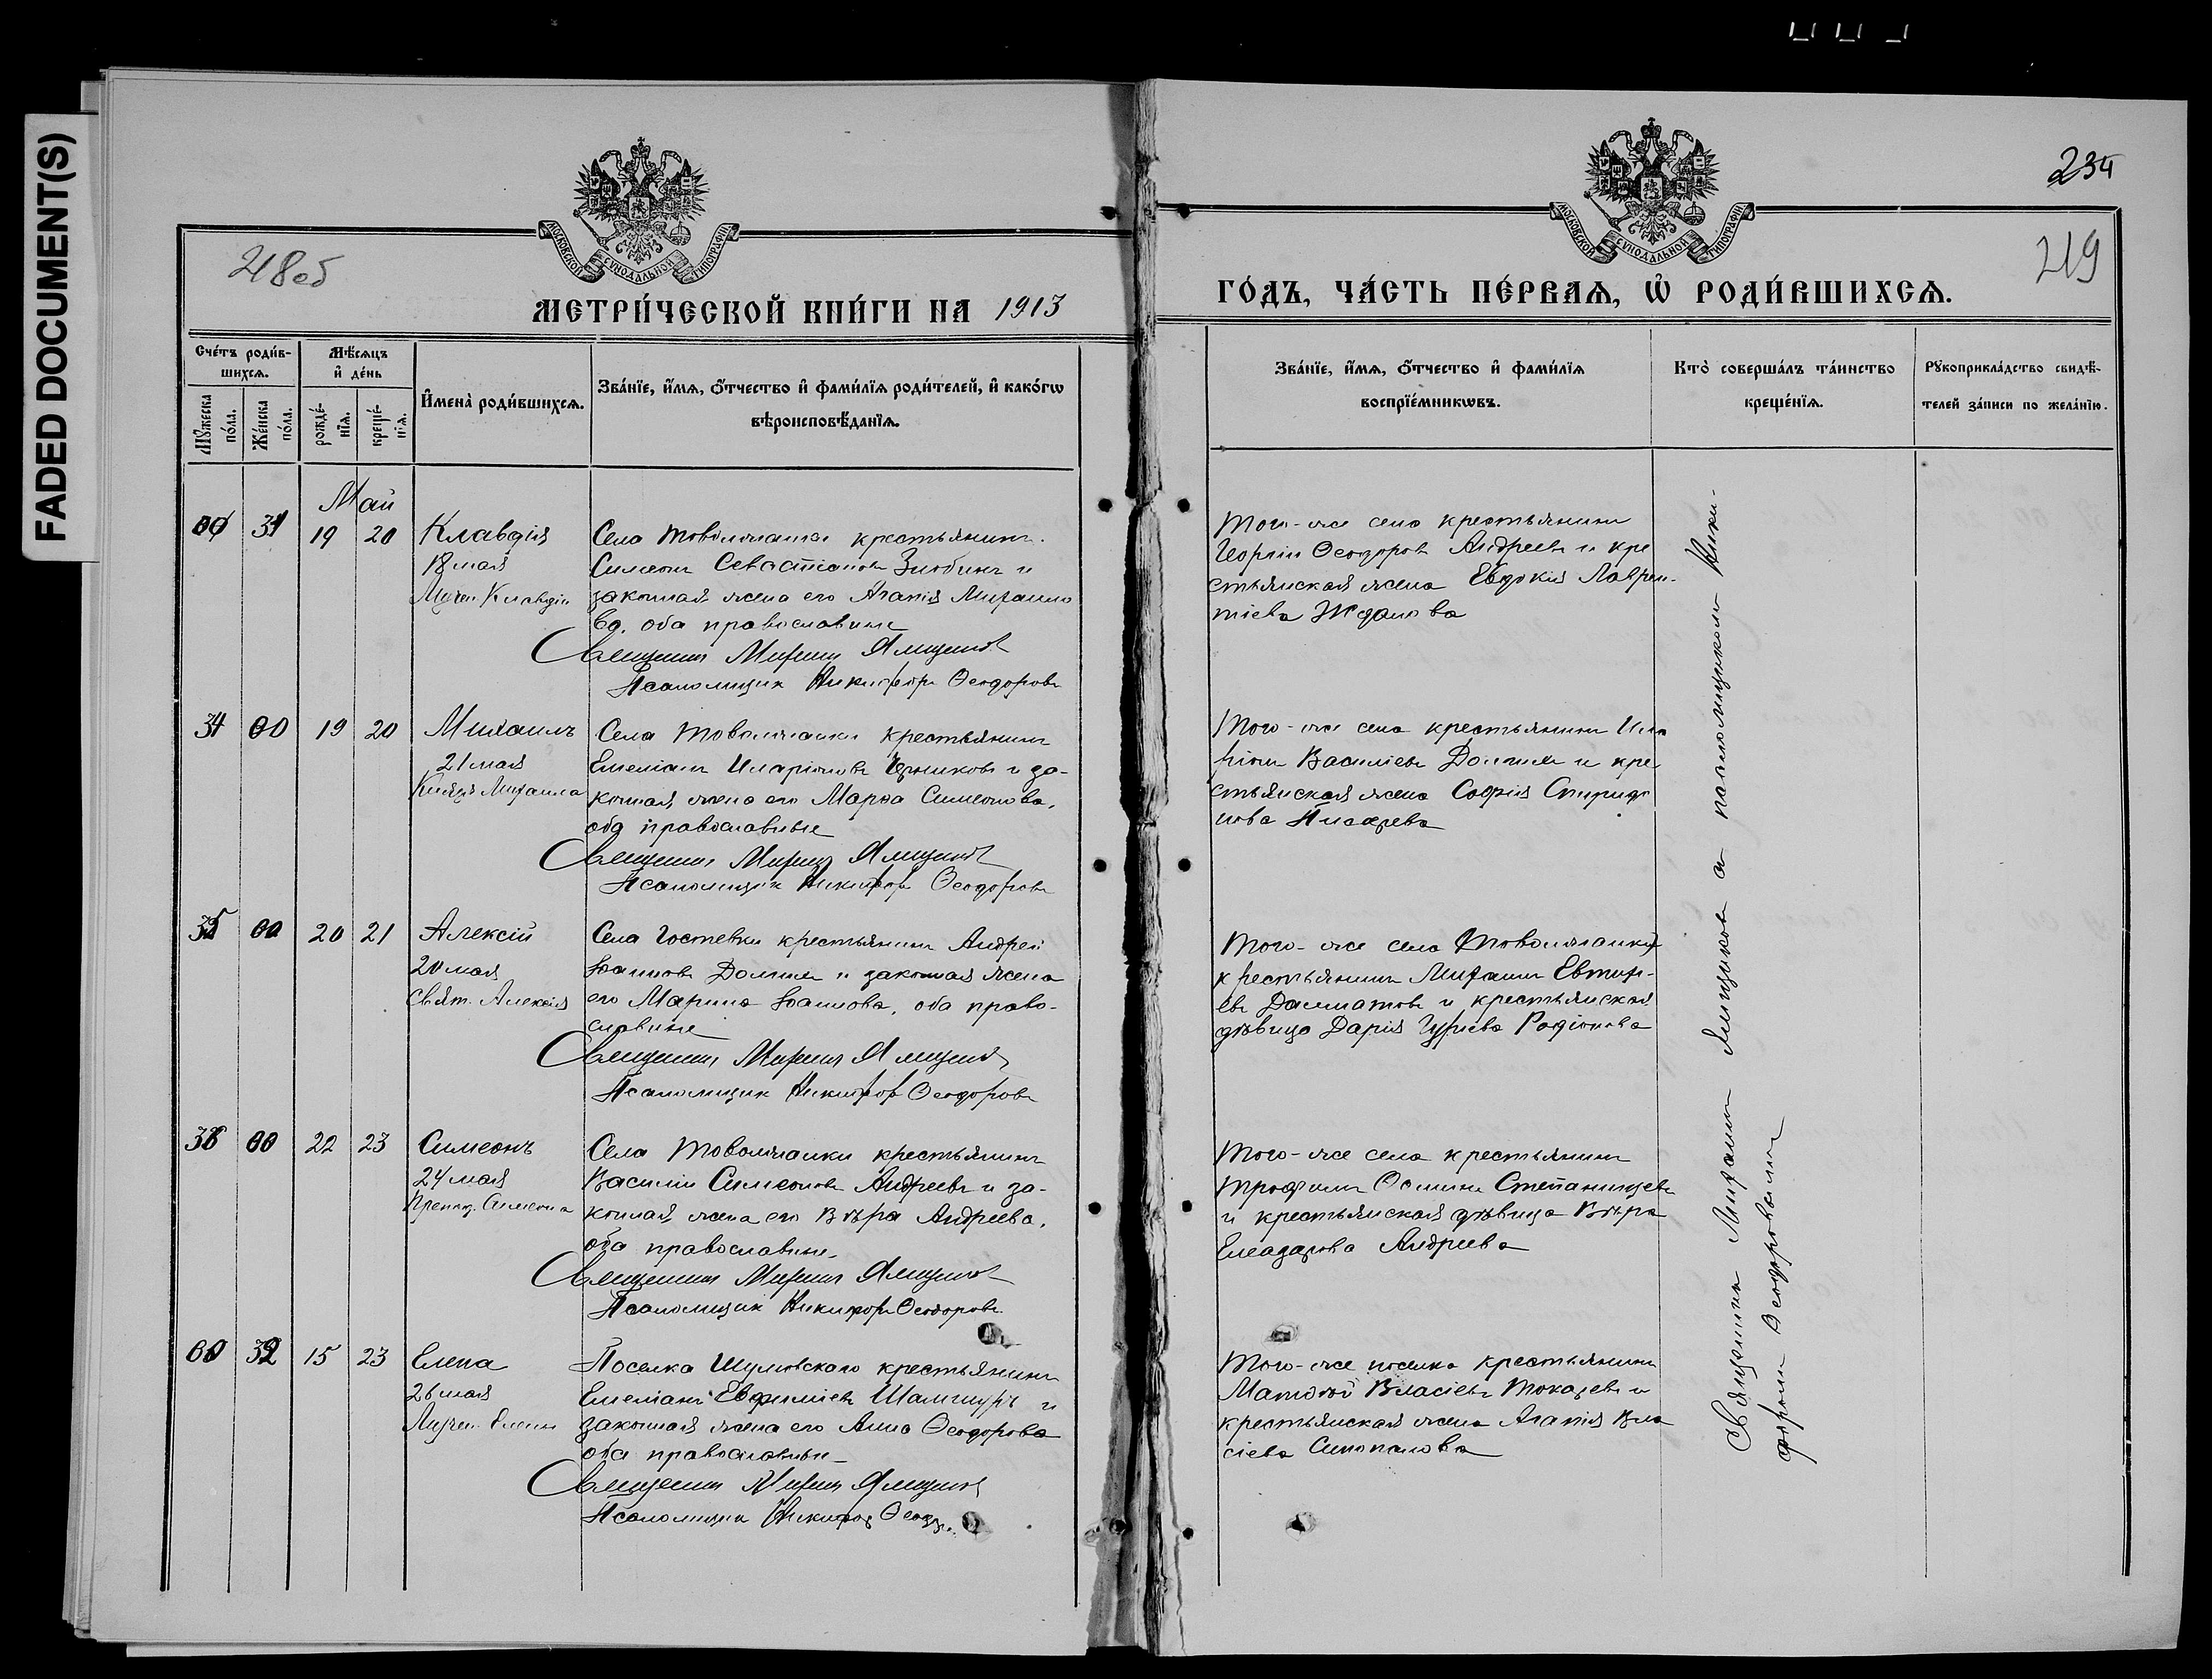 FADED DOCUMENT(S)
МОСКОВСКОЙ СУНОДАЛЬНОЙ ТИПОГРАФІИ
218об
МЕТРИ́ЧЕСКОЙ КНИ́ГИ НА 1913
Сче́тъ роди́в-
шихсѧ.
Мѣ́сѧцъ
и҆ де́нь
Мꙋ́жеска по́ла.
Же́нска по́ла.
рожде́-нїѧ.
креще́-нїѧ.
И҆мена̀ роди́вшихсѧ.
Зва́нїе, и҆́мѧ, ѻ҆́тчество и҆ фами́лїѧ роди́телей, и҆ како́гѡ
вѣроисповѣ́данїѧ.
Май
00 31 19 20 Клавдія
18 мая
Мучен. Клавдіи
Села Товолжанки крестьянинъ
Симеонъ Севастіановъ Злобинъ и
законная жена его Агапія Михаило
ва, оба православные
Священникъ Михаилъ Ямщиковъ
Псаломщикъ Никифоръ Ѳеодоровъ
34 00 19 20 Михаилъ
21 мая
Князя Михаила
Села Товолжанки крестьянинъ
Емеліанъ Иларіоновъ и за-
конная жена его Марѳа Симеонова,
оба православные
Священникъ Михаилъ Ямщиковъ
Псаломщикъ Никифоръ Ѳеодоровъ
35 00 20 21 Алексій
20 мая
Свят. Алексія
Села Гостевки крестьянинъ Андрей
Іоанновъ Долгихъ и законная жена
его Марина Іоаннова, оба право-
славные
Священникъ Михаилъ Ямщиковъ
Псаломщикъ Никифоръ Ѳеодоровъ
36 00 22 23 Симеонъ
24 мая
Препод. Симеона
Села Товолжанки крестьянинъ
Василій Симеоновъ Андреевъ и за-
конная жена его Вѣра Андреева,
оба православные
Священникъ Михаилъ Ямщиковъ
Псаломщикъ Никифоръ Ѳеодоровъ
00 32 15 23 Елена
26 мая
Мучен. Елены
Поселка Шумовскаго крестьянинъ
Емеліанъ Евфиміевъ Шамшуръ и
законная жена его Анна Ѳеодорова
оба православные
Священникъ Михаилъ Ямщиковъ
Псаломщикъ Никифоръ
МОСКОВСКОЙ СУНОДАЛЬНОЙ ТИПОГРАФІИ
234
219
ГО́ДЪ, ЧА́СТЬ ПЕ́РВАѦ, Ѡ҆ РОДИ́ВШИХСѦ.
Зва́нїе, и҆́мѧ, ѻ҆́тчество и҆ фами́лїѧ
воспрїе́мникѡвъ.
Кто̀ соверша́лъ та́инство
креще́нїѧ.
Рꙋкоприкла́дство свидѣ́-
телей за́писи по жела́нїю.
Того-же села крестьянинъ
Георгій Ѳеодоровъ Андреевъ и кре
стьянская жена Евдокія Лаврен-
тіева Жданова
Того-же села крестьянинъ Ила
ріонъ Василіевъ Долгихъ и кре
стьянская жена Софія Спиридо
нова Писарева
Того-же села Товолжанки
крестьянинъ Михаилъ Евтихі-
евъ Далматовъ и крестьянская
дѣвица Дарія Гуріева Родіонова
Того-же села крестьянинъ
Трофимъ Осипинъ Степанищевъ
и крестьянская дѣвица Вѣра
Елеазарова Андреева
Того-же поселка крестьянинъ
Матѳей Власіевъ Токаревъ и
крестьянская жена Агапія Вла
сіева Синопалова
Священникъ Михаилъ Ямщиковъ съ псаломщикомъ Ники-
форомъ Ѳеодоровымъ